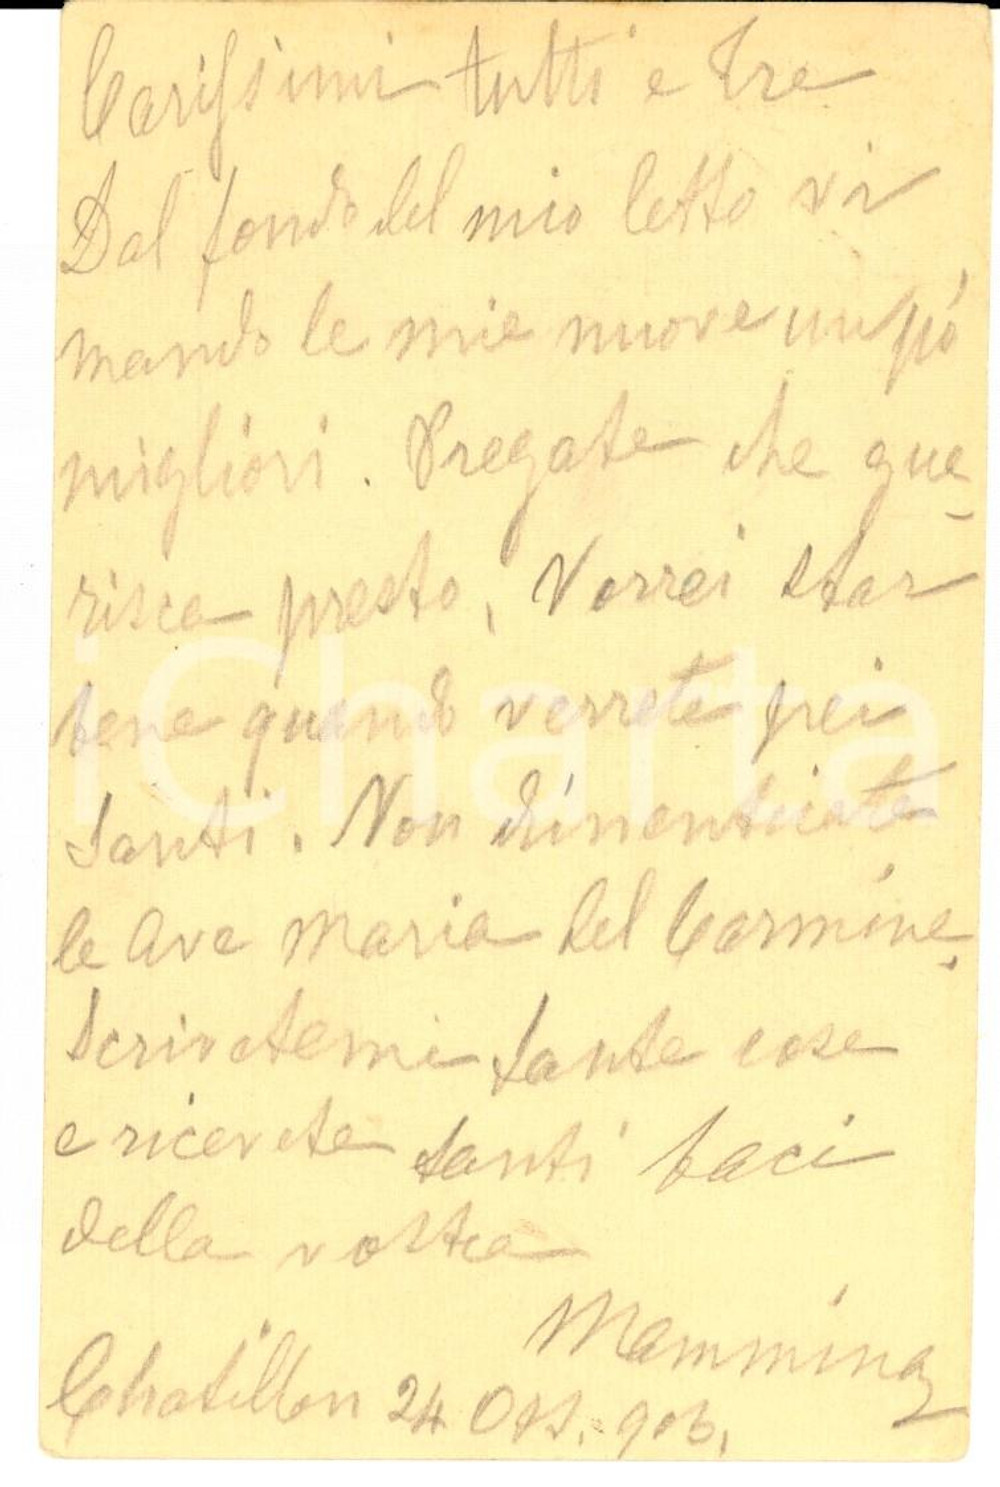 Carissimi tutti e Tre
Dal fondo del mio letto vi
mando le mie nuove un pó
migliori. Pregate che gue-
risca presto, Vorrei star
bene quando verrete pei
Santi. Non dimenticate
le Ave Maria del Carmine.
Scrivetemi tante cose
e ricevete tanti baci
della vostra
Mammina
Chatillon 24 Ott. 906.
iCharta